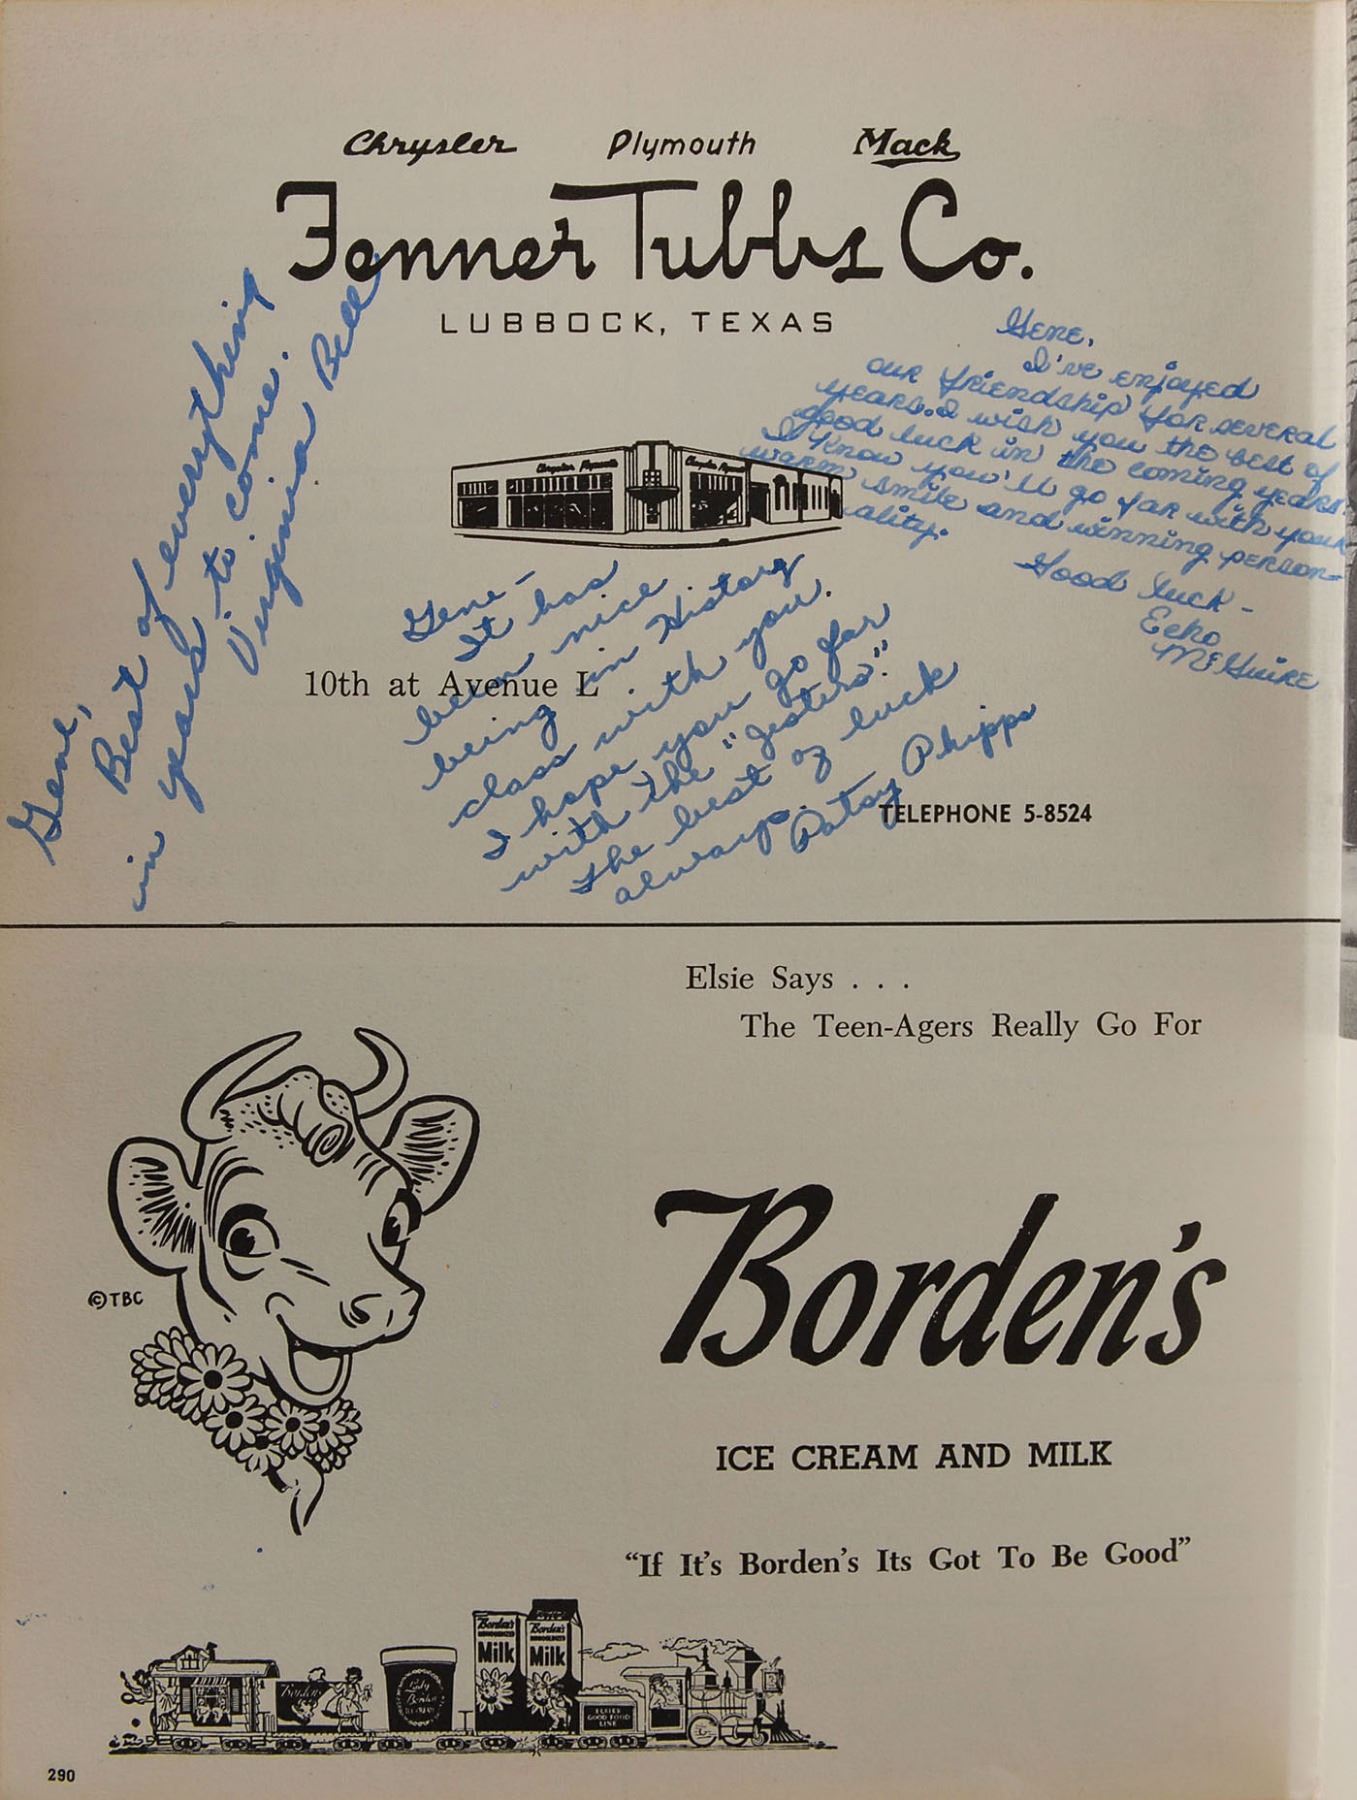 Chrysler Plymouth Mack
Fenner Tubbs Co.
LUBBOCK, TEXAS
Gene,
Best of everything
in years to come.
Virginia Bell
Gene,
I've enjoyed
our friendship for several
years. I wish you the best of
good luck in the coming years.
I know you'll go far with your
warm smile and winning person-
ality.
Good luck -
Echo
McGuire
Chrysler Plymouth
Chrysler Plymouth
Gene -
It has
been nice
being in History
class with you.
I hope you go far
with the "Jesters".
The best of luck
always.
Patsy Phipps
10th at Avenue L
TELEPHONE 5-8524
Elsie Says . . .
The Teen-Agers Really Go For
©TBC
Borden's
ICE CREAM AND MILK
"If It's Borden's Its Got To Be Good"
Borden's
Milk
Borden's
Milk
Borden's
Lady
Borden
ELSIE'S
GOOD FOOD
LINE
290